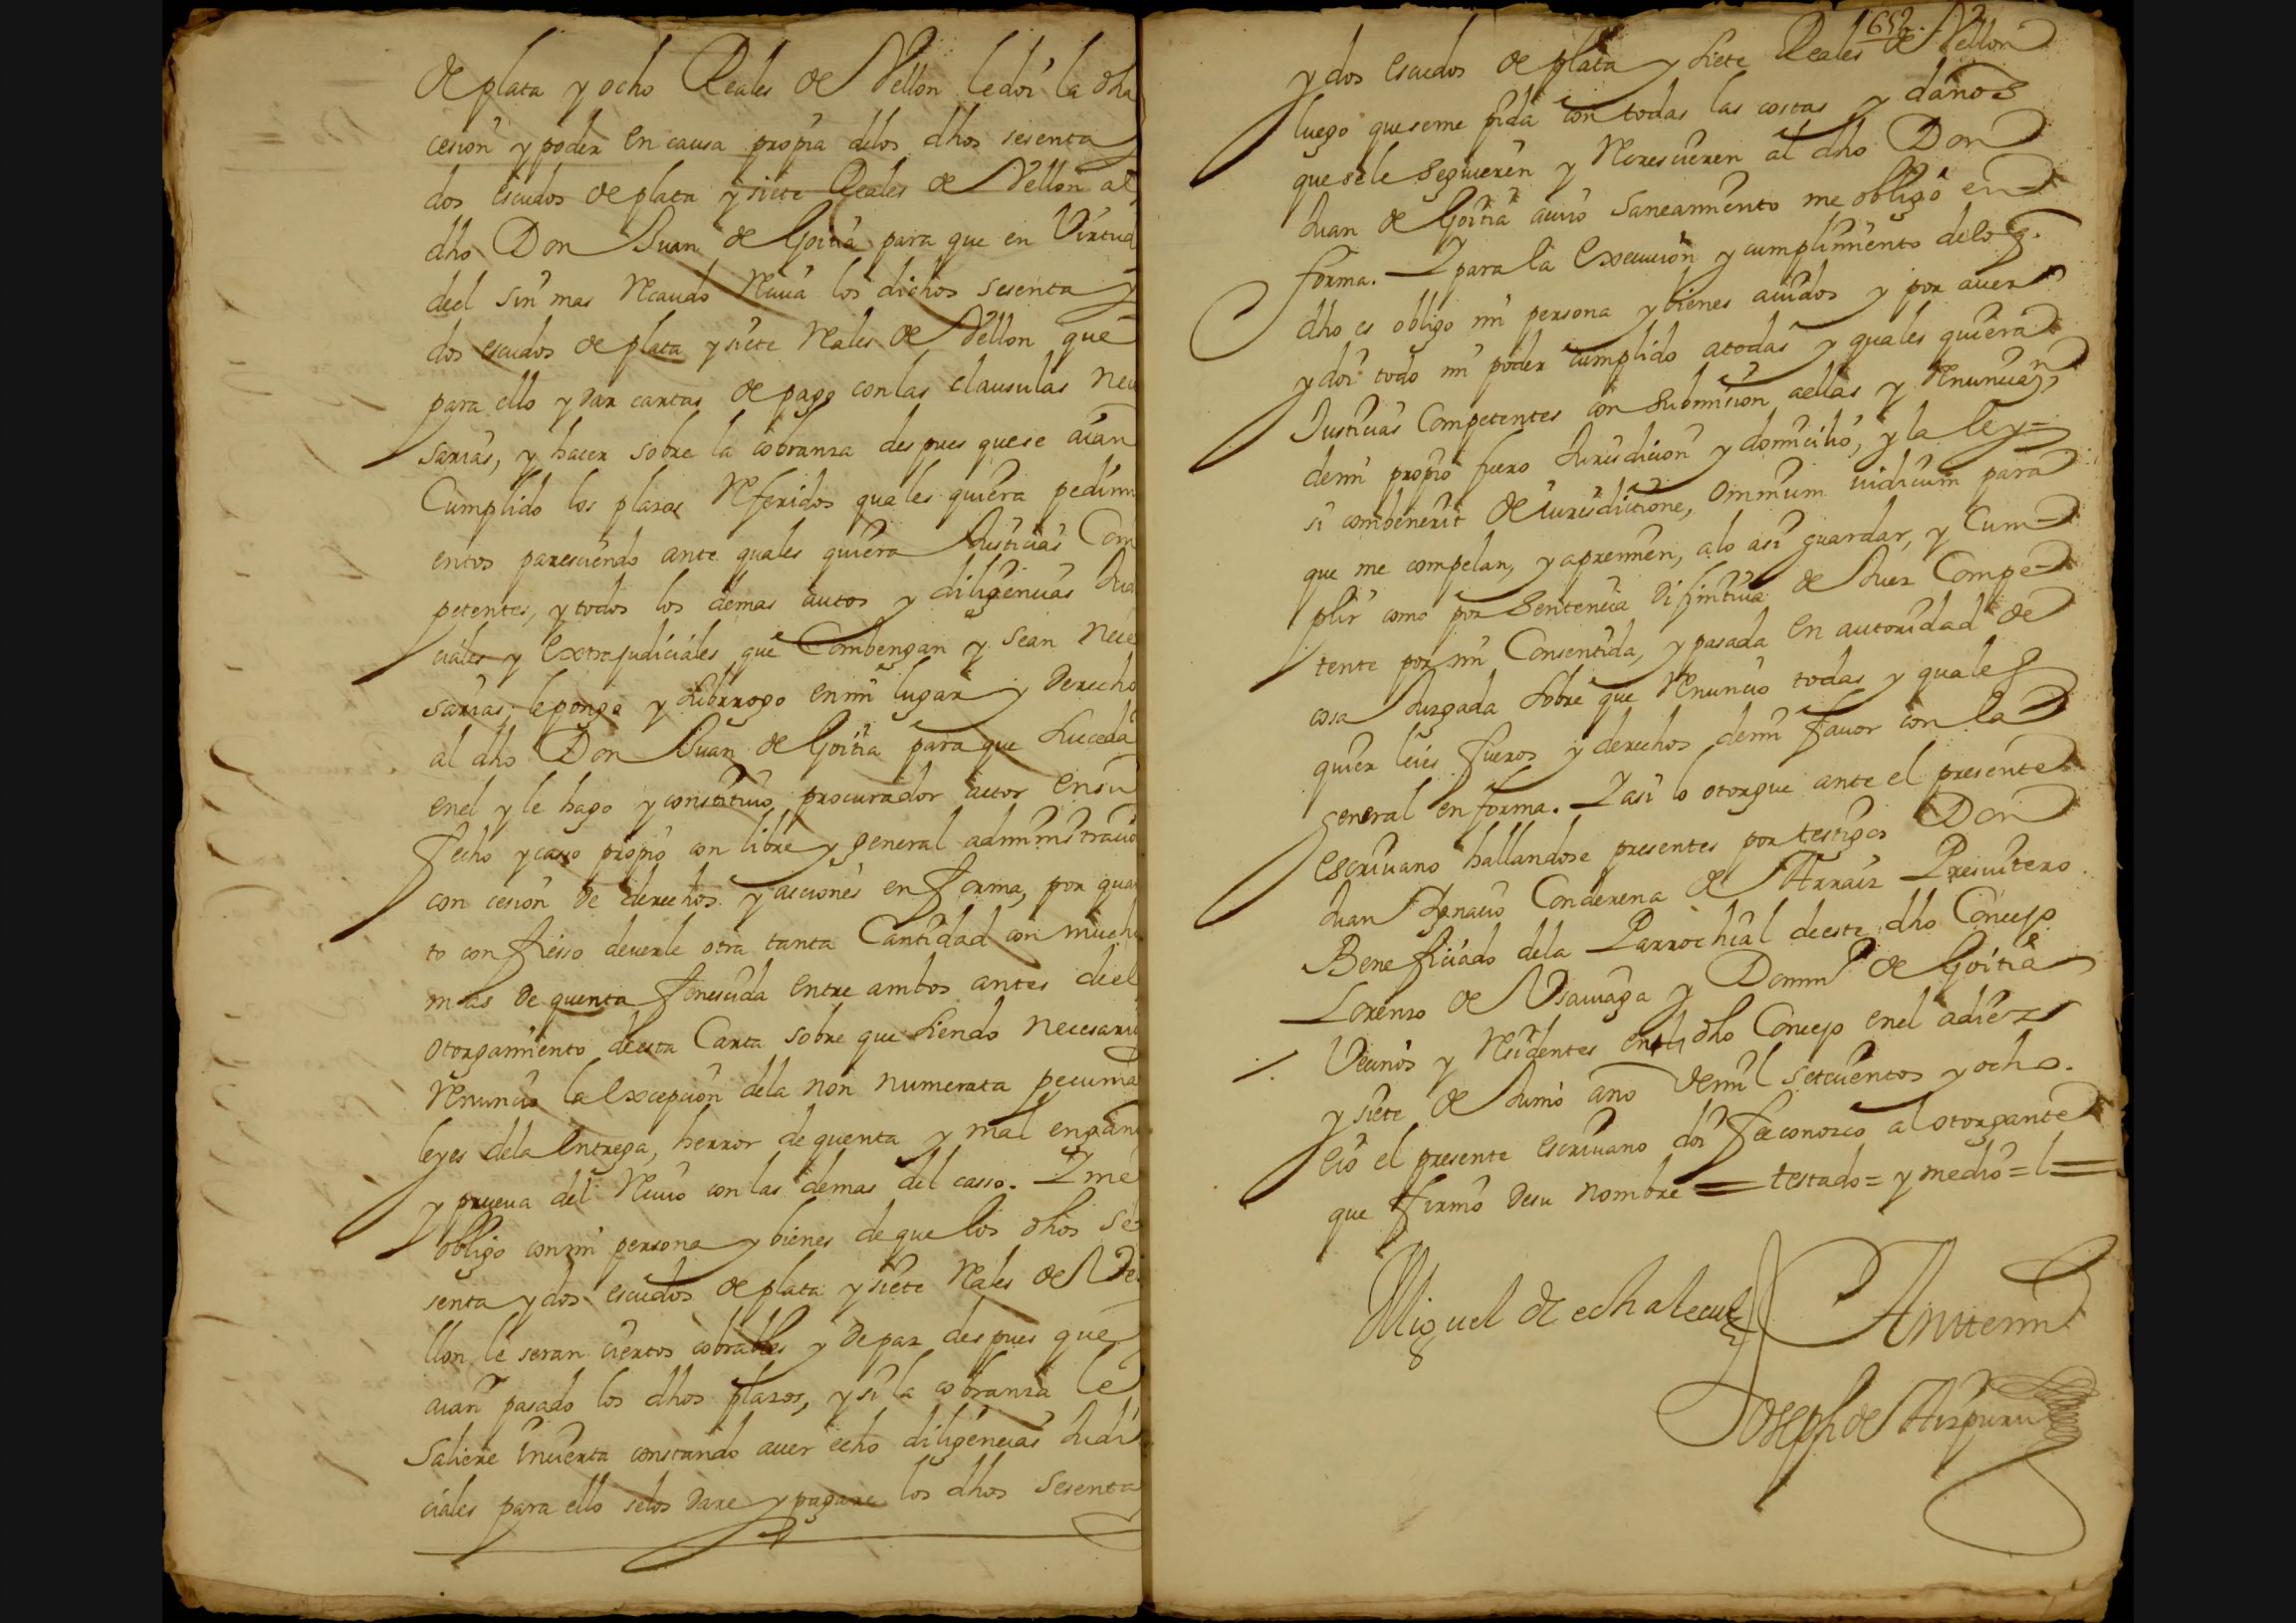 de plata y ocho Reales de Vellon ledoi la dha
cesion y poder en causa propia delos dhos sesenta y
dos escudos de plata y siete Reales de Vellon al
dho Don Juan de Goitia para que en Virtud
deel sin mas Recaudo Reciua los dichos sesenta y
dos escudos de plata y siete Reales de Vellon que
para ello y dar cartas de pago conlas clausulas nece
sarias, y hacer sobre la cobranza despues quese aian
Cumplido los plazos Referidos quales quiera pedimi
entos paresciendo ante quales quiera Justicias Com
petentes, y todos los demas autos y diligencias Judi
ciales y Extrajudiciales que Combengan y sean nece
sarias, lepongo y subrrogo enmi lugar y derecho
al dho Don Juan de Goitia para que suceda
enel y le hago y constituio procurador actor ensu
fecho y casso propio con libre y general administracio
con cesion de derechos y acciones en forma, por quan
to confiesso deuerle otra tanta Cantidad con mucho
mas de quenta fenescida entre ambos antes deel
otorgamiento deesta Carta sobre que siendo necesario
Renuncio la excepcion dela non numerata pecunia
leyes dela entrega, herror de quenta y mal engaño
y prueua del Reciuo con las demas del casso. Y me
obligo conmi persona y bienes de que los dhos se
senta y dos escudos de plata y siete Reales de Ve
llon le seran ciertos cobrables y de paz despues que
aian pasado los dhos plazos, y si la cobranza le
saliere incierta constando auer echo diligencias Judi
ciales para ello selos dare y pagare los dhos sesenta
652
y dos escudos de plata y siete Reales de Vellon
luego queseme pida con todas las costas y daños
que sele seguieren y Recrescieren al dho Don
Juan de Goitia a cuio saneamiento me obligo en
forma. Y para la execucion y cumplimiento delo q.
dho es obligo mi persona y bienes auidos y por auer
y doi todo mi poder cumplido a todas y quales quiera
Justicias Competentes con submision aellas y Renuncian
demi propio fuero Jurisdicion y domicilio, y la ley
si combenerit de iurisdictione, omnium iudicum para
que me compelan, y apremien, alo asi guardar, y Cum
plir como por Sentencia difinitiua de Juez Compe
tente por mi Consentida, y pasada en autoridad de
cosa Juzgada sobre que Renuncio todas y quales
quier leies fueros y derechos demi fauor con la
general en forma. Y asi lo otorgue ante el presente
escriuano hallandose presentes por testigos Don
Juan Ignacio Conderena de Arraiz Presuitero
Beneficiado dela Parrochial deeste dho Concejo
Lorenzo de Vsauiaga y Domin.º de Goitia
Vecinos y Residentes en el dho Concejo enel a diez
y siete de Junio año demil setecientos y ocho.
E io el presente escriuano doi fee conozco al otorgante
que firmo desu nombre = testado = y medio = l =
Miguel de echalecu
Antemi
Joseph de Aizpuru